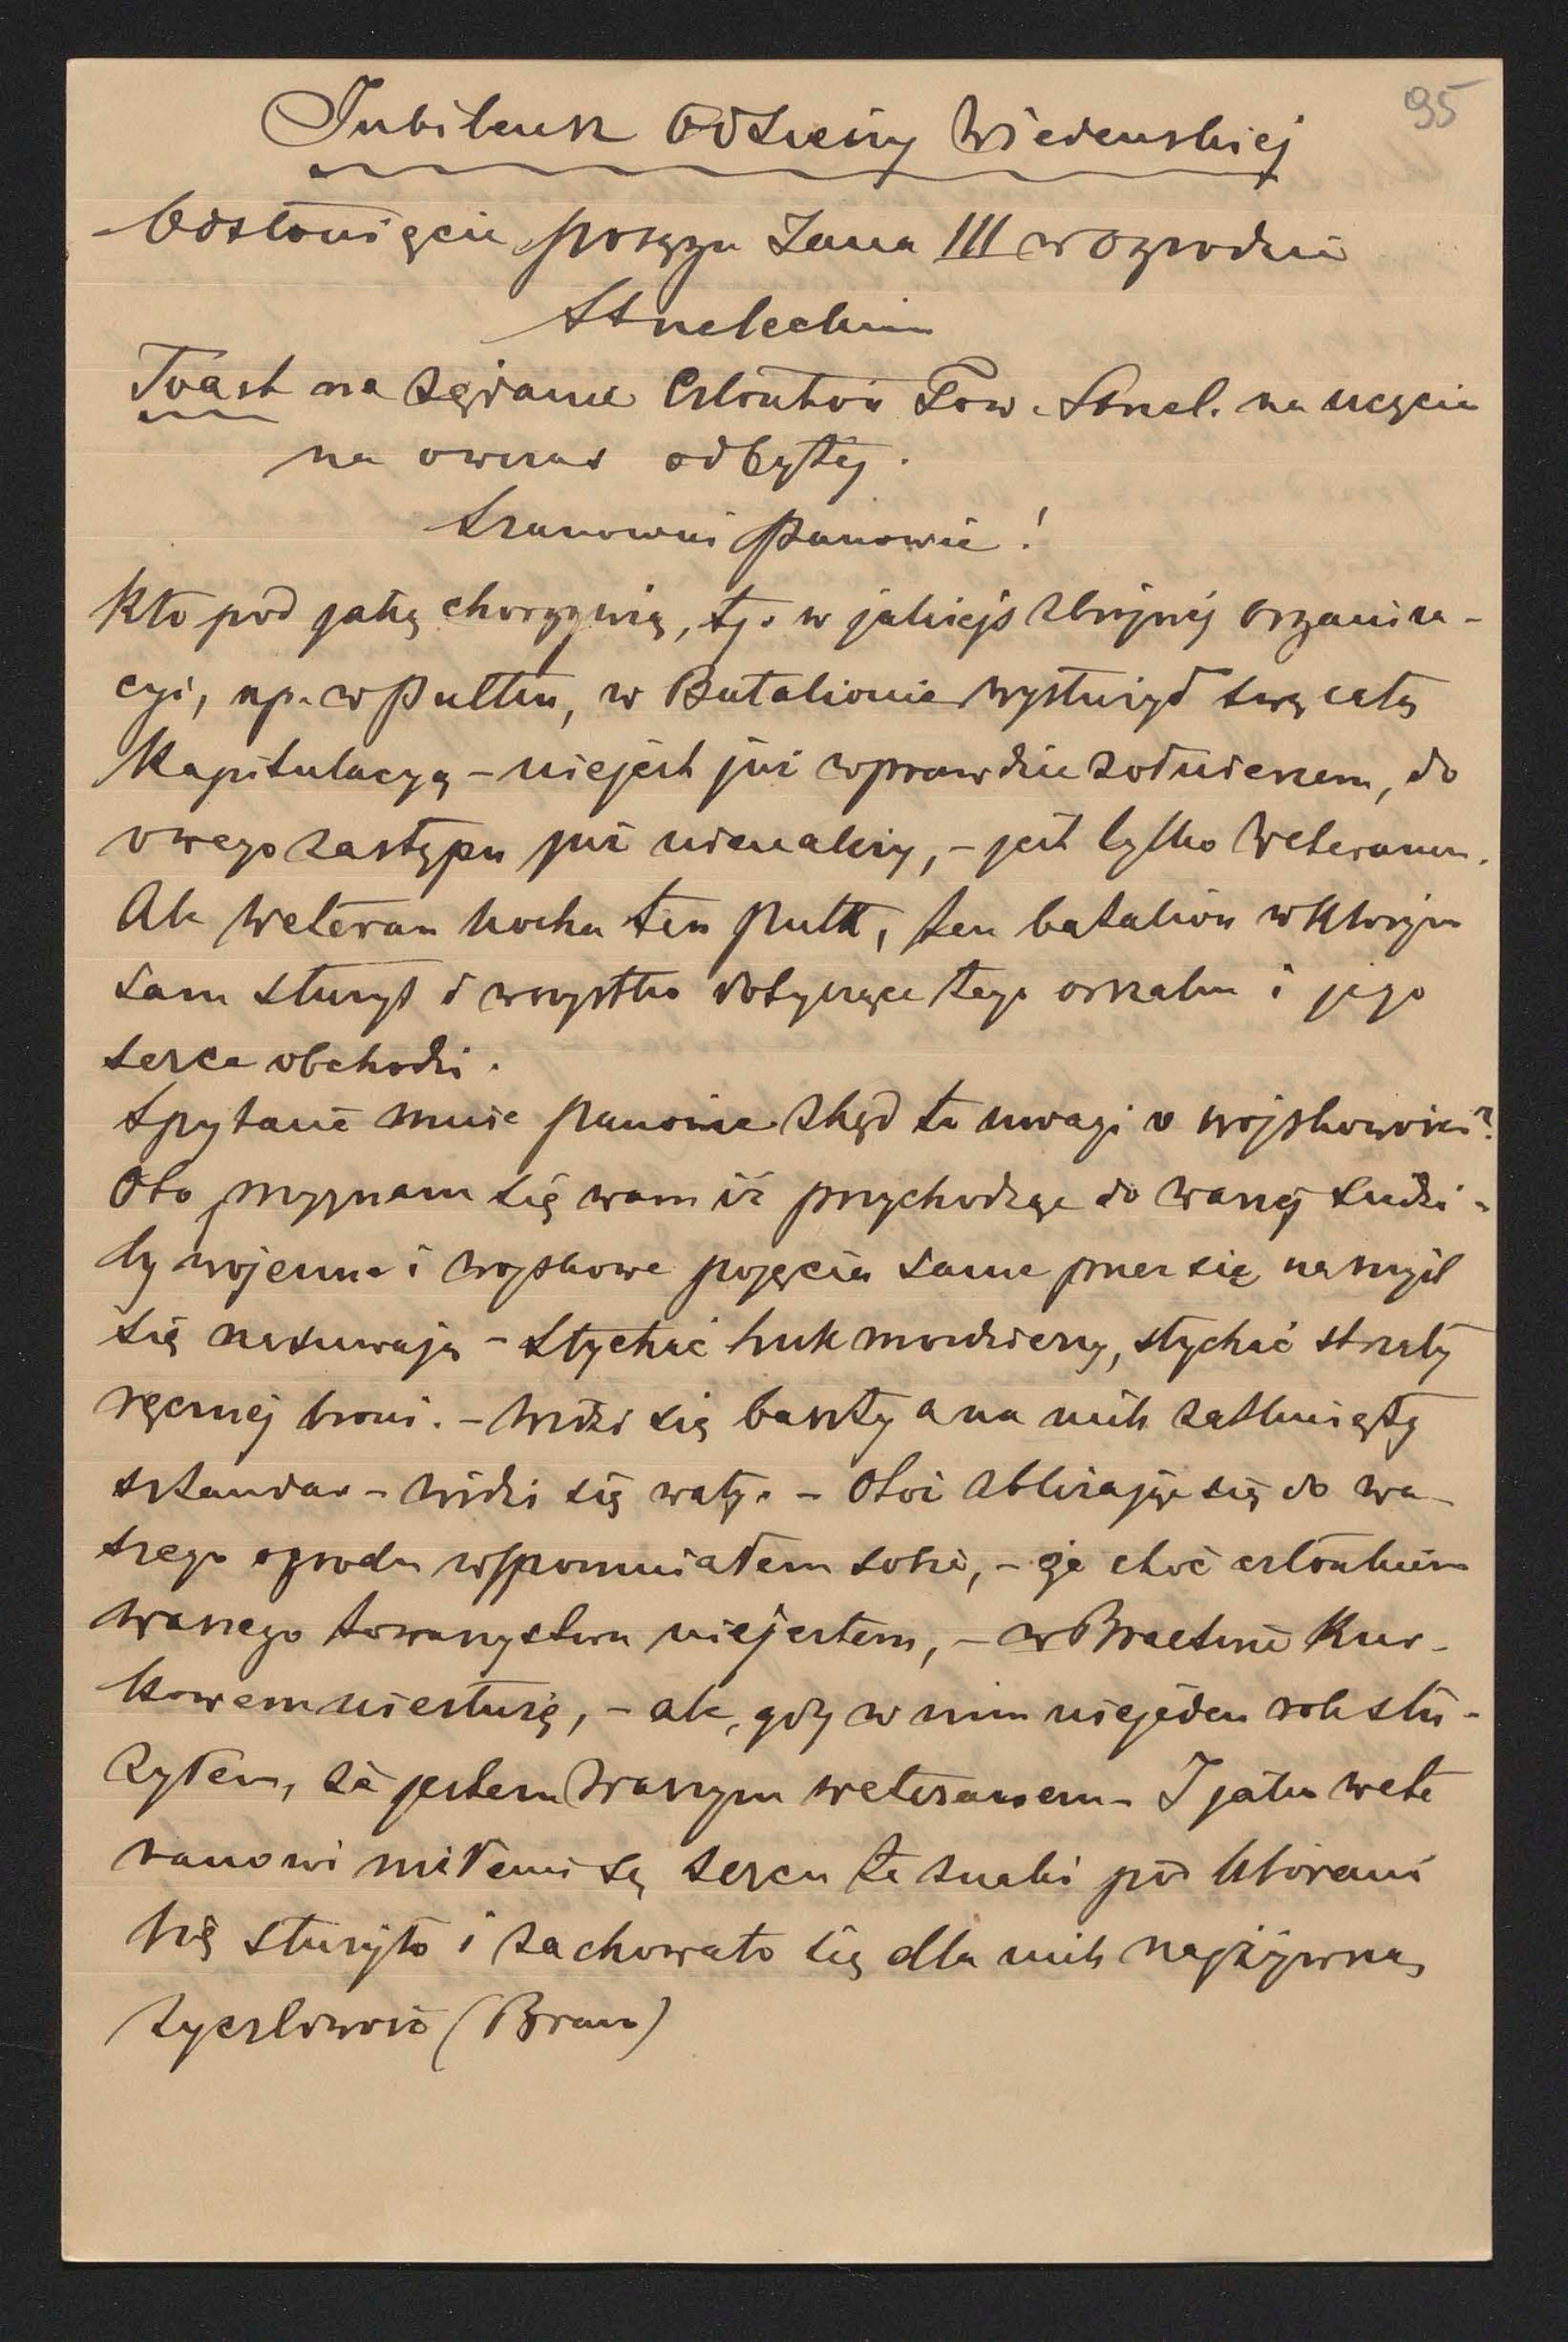 95
Jubileusz Odsieczy Wiedeńskiej
Odsłonięcie posągu Jana III w Ogrodzie
Strzeleckim
Toast na żądanie Członków Tow. Strzel. na uczcie
na owczas odbytej.
Szanowni Panowie!
Kto pod jaką chorągwią, tj. w jakiejś zbrojnéj organiza-
cyi, np. w Pułku, w Batalionie wysłużył swą całą
Kapitulacyą – niejest już wprawdzie żołnierzem, do
owego zastępu już nienależy, – jest tylko Weteranem.
Ale Weteran kocha ten Pułk, ten batalion w którym
sam służył i wszystko dotyczące tego oszalm i jego
serce obchodzi.
Spytacie mnie panowie zkąd te uwagi o wojskowości?
Oto przyznam się wam iż przychodząc do waszéj siedzi-
by wojenne i wojskowe pojęcia same przez się na myśl
się nasuwają – Słychać huk moździerzy, słychać strzały
ręcznéj broni. – Widzi się baszty a na nich zatknięty
sztandar – widzi się wały. – Otóż zbliżając się do wa-
szego ogrodu wspomniałem sobie, – że choć członkiem
waszego towarzystwa niejestem, – w Bractwie Kur-
kowem niesłużę, – ale, gdy w nim niejeden rok słu-
żyłem, że jestem Waszym weteranem – I jako wete
ranowi miłemi są sercu te znaki pod któremi
się służyło i zachowało się dla nich najżywszą
życzliwość (Braw)